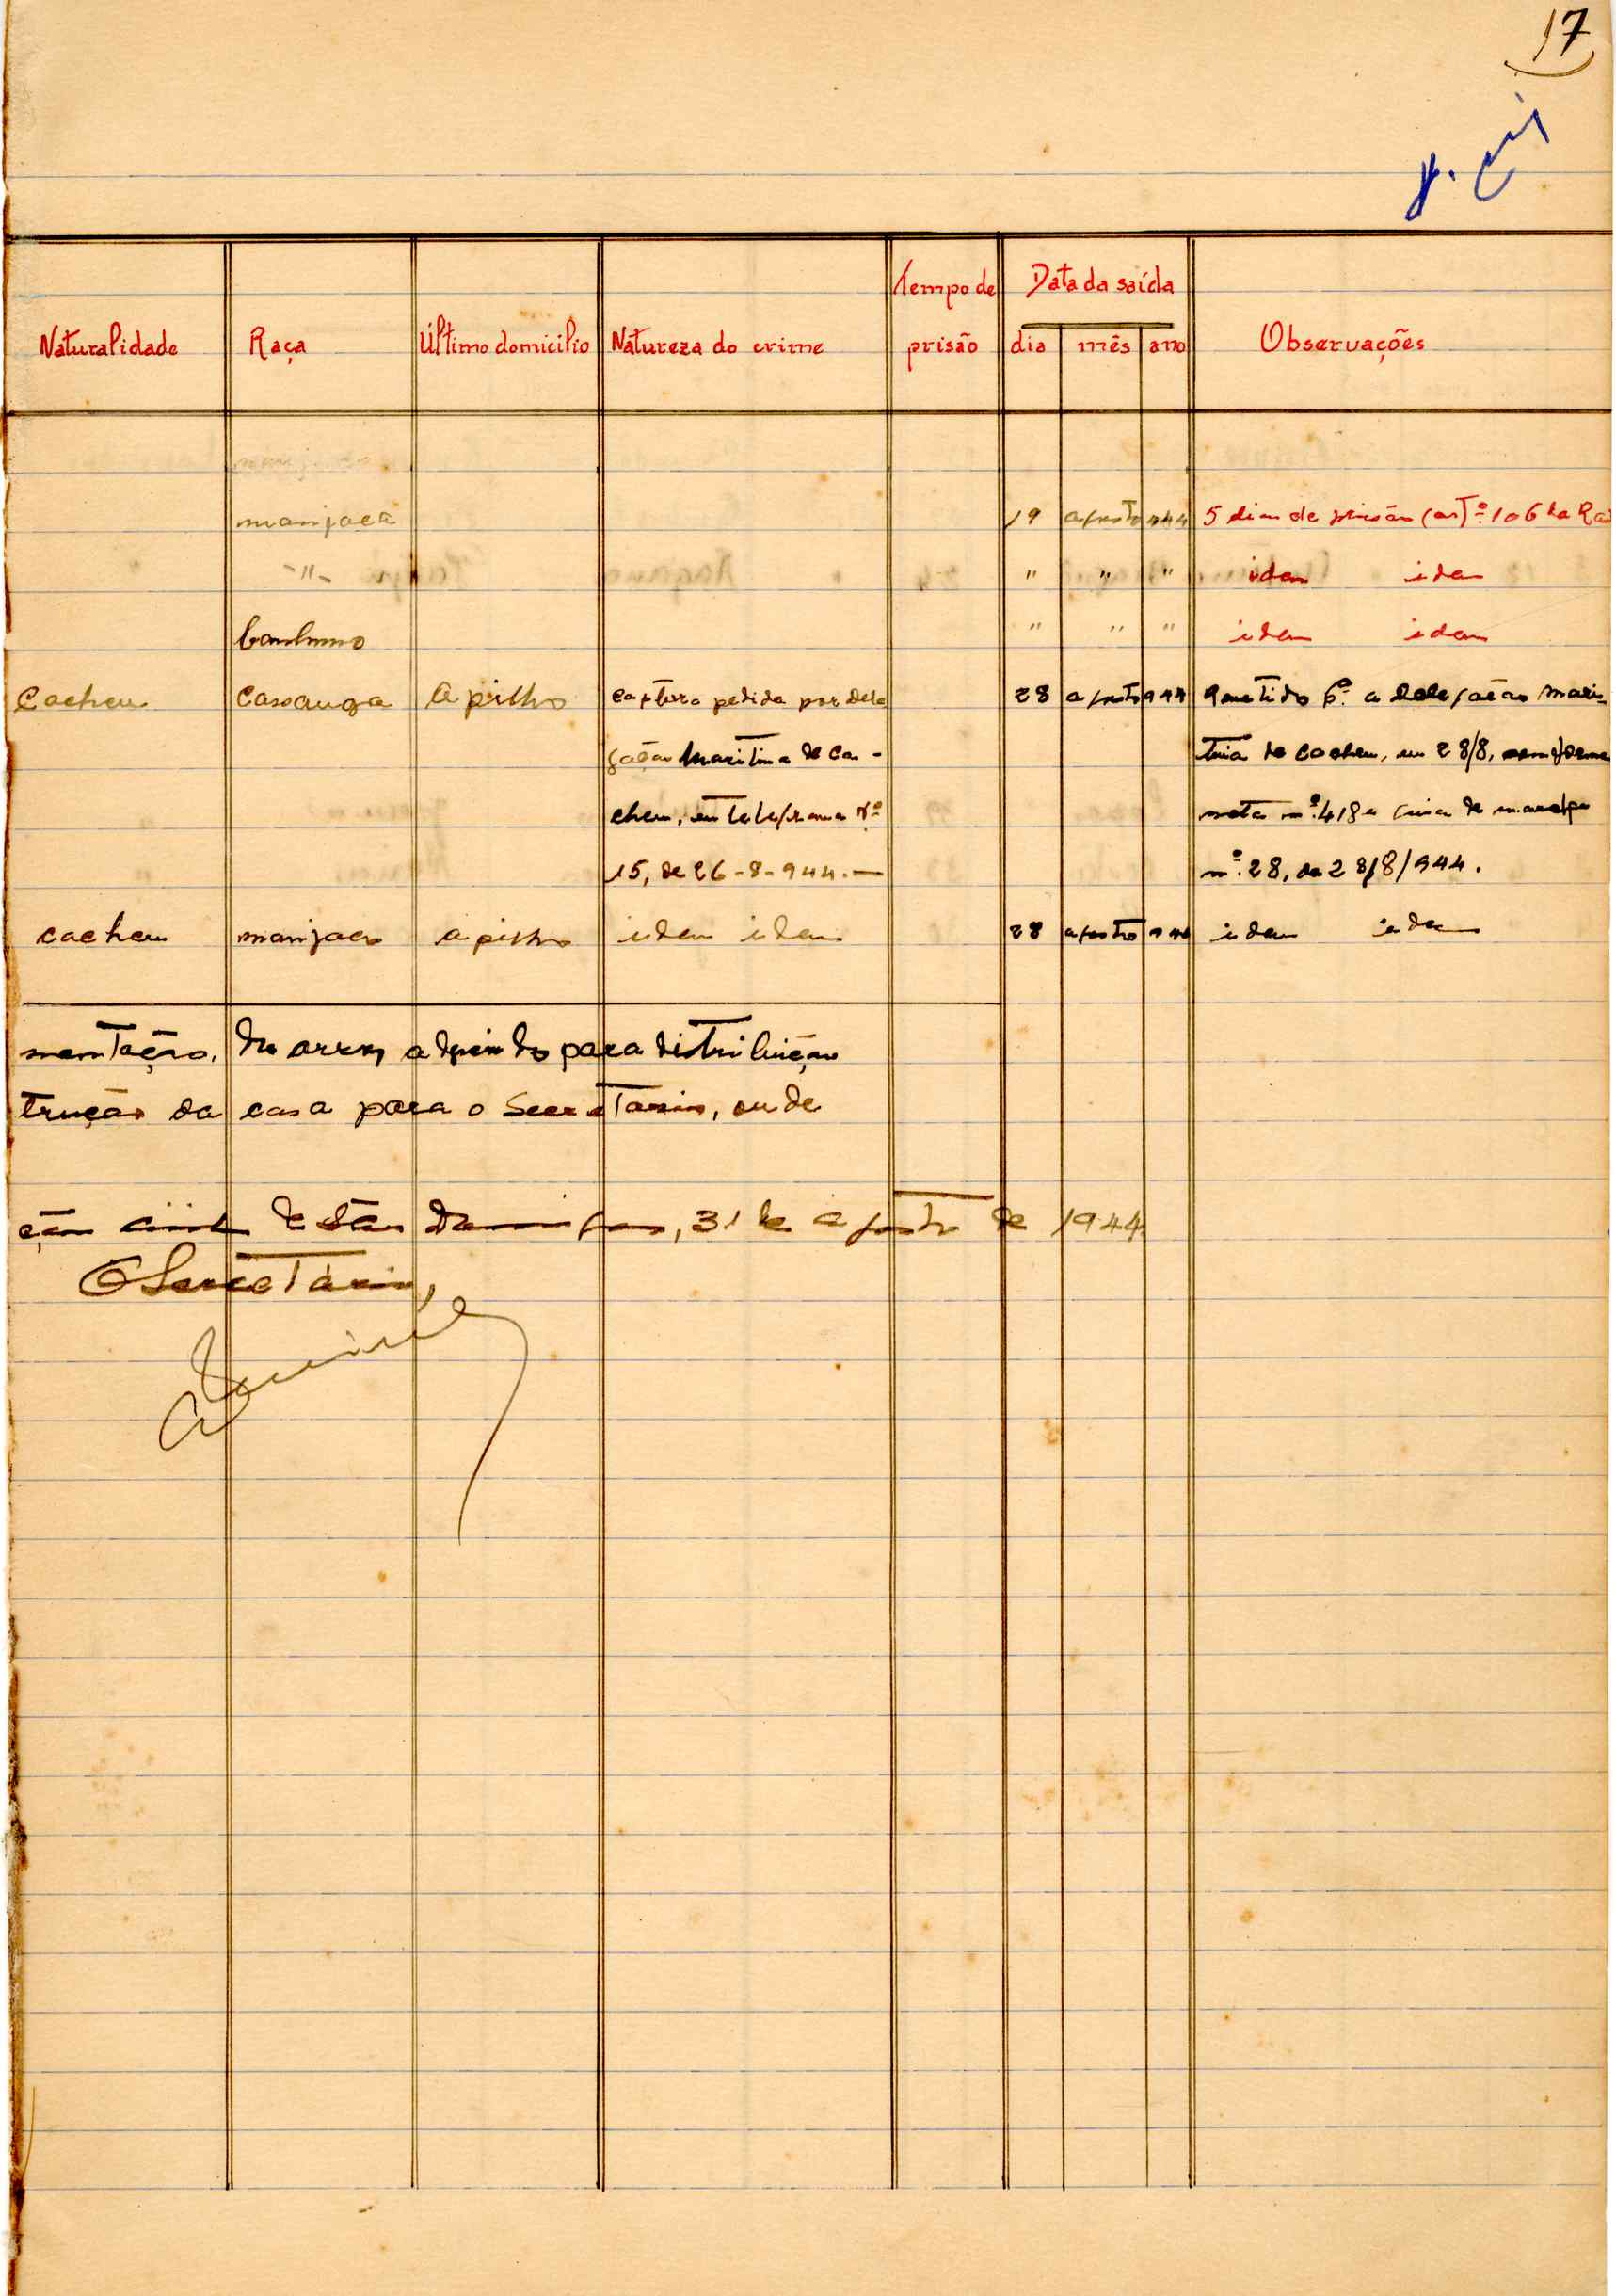 17
Tempo de Data da saída
Naturalidade Raça Último domicílio Natureza do crime prisão dia mês ano Observações
manjaca 19 agosto 944 5 dias de prisão (artº. 106 da Ra
-"- " " " idem idem
" " " idem idem
Cacheu Cassanga Apilho captura pedida por dele 28 agosto 944 Remetido á delegação mari-
gação Maritima de Ca- tima de Cacheu, em 28/8, conforme
cheu, em telegrama Nº nota nº. 418 e guia de marcha
15, de 26-8-944.— nº. 28, de 28/8/944.
Cacheu manjaco apilho idem idem 28 agosto 944 idem idem
mentação, do arroz adquirido para distribuição
trução da casa para o Secretario, onde
ção de São Domingos, 31 de agosto de 1944
O Secretário,